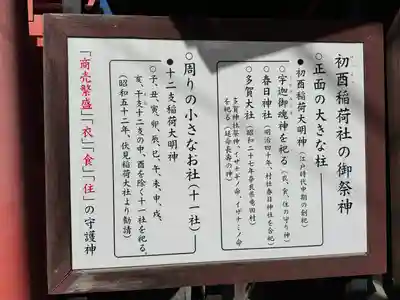 初酉稲荷社の御祭神
○正面の大きな柱
●初酉稲荷大明神（江戸時代中期の創祀）
○宇迦御魂神を祀る（衣、食、住の守り神）
●春日神社（明治四十年、村社春日神社を合祀）
●多賀大社（昭和二十七年
多賀神社祭神、イザナギノ命、イザナミノ命、
を祀る（延命長寿の神）
○周りの小さなお社（十一社）
●十二支稲荷大明神
○子、丑、寅、卯、辰、巳、午、未、申、戌、
亥、干支十二支の中、酉を除く十一社を祀る。
（昭和五十二年、伏見稲荷大社より勧請）
「商売繁盛」「衣」「食」「住」の守護神